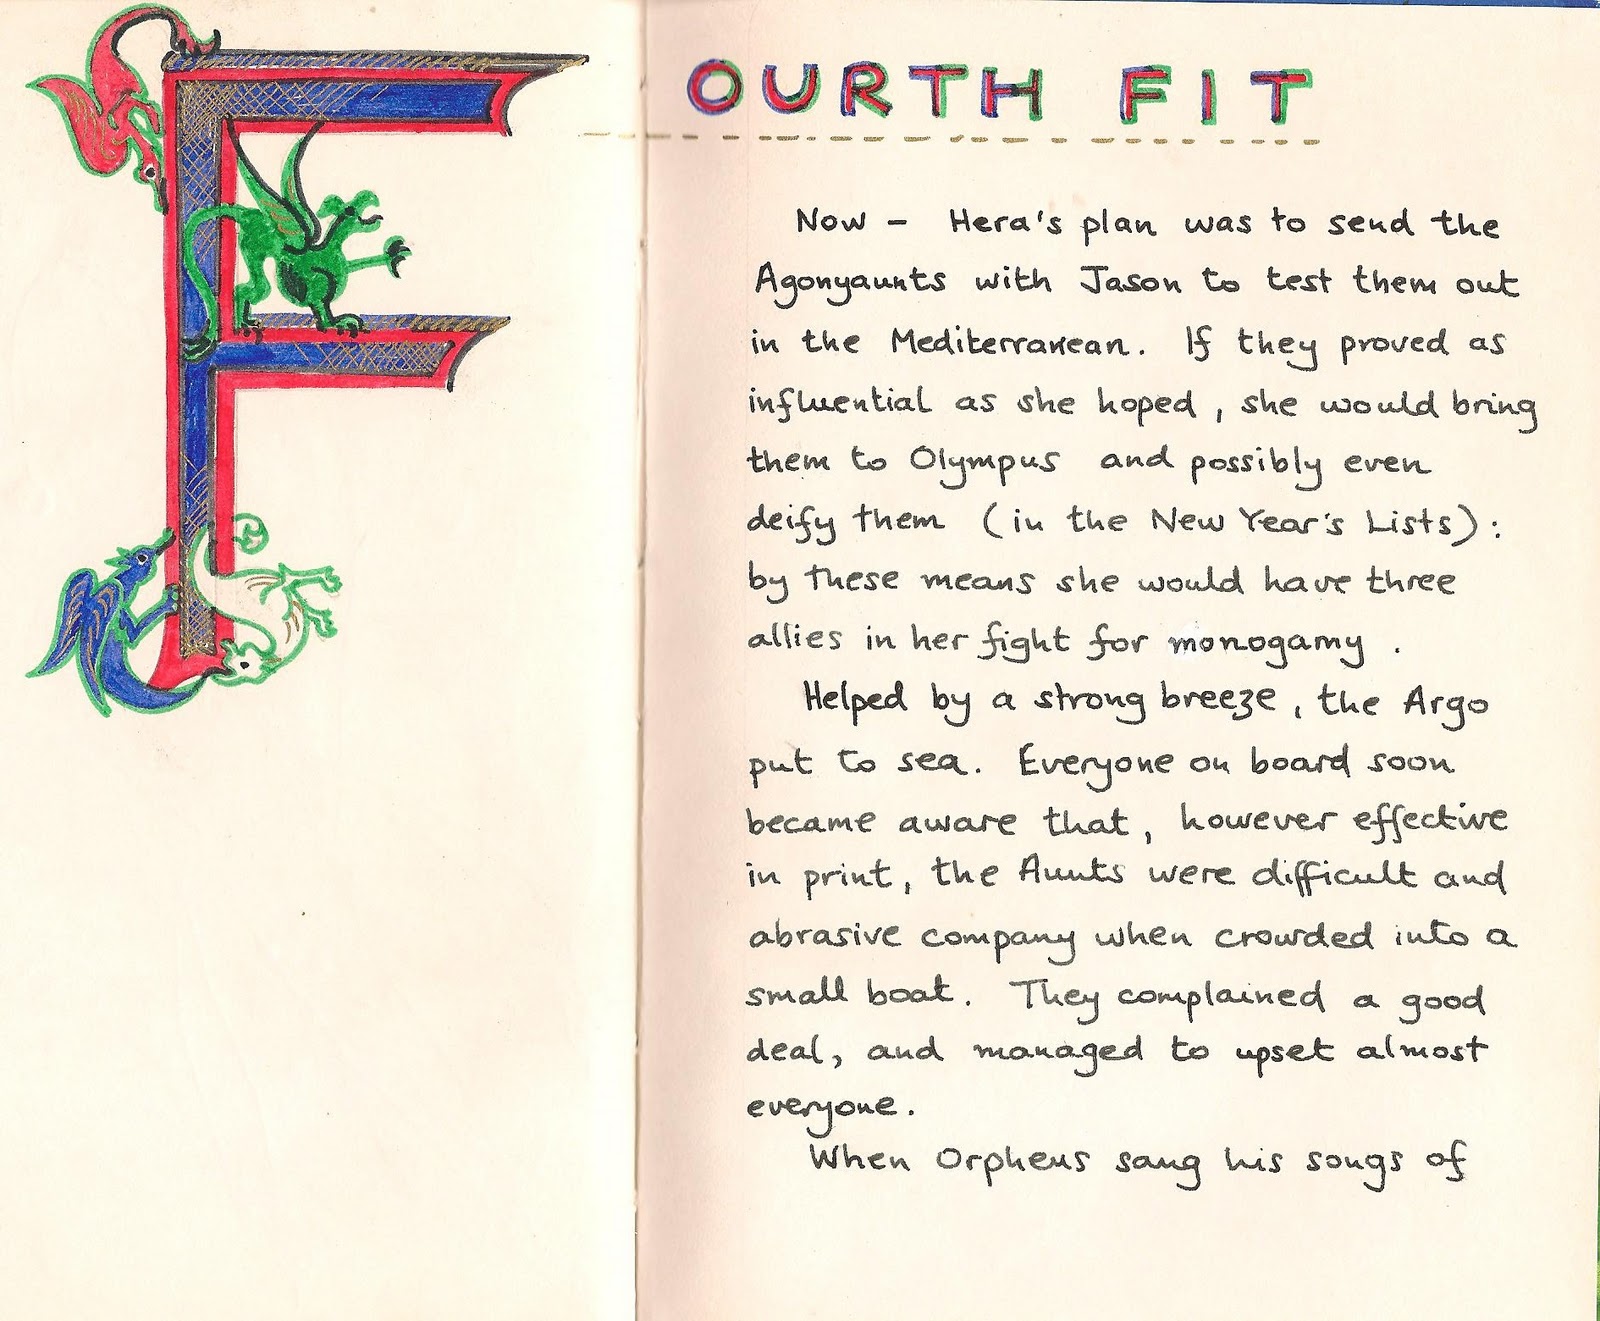 FOURTH FIT
Now – Hera's plan was to send the
Agonyaunts with Jason to test them out
in the Mediterranean. If they proved as
influential as she hoped, she would bring
them to Olympus and possibly even
deify them (in the New Year's Lists):
by these means she would have three
allies in her fight for monogamy.
Helped by a strong breeze, the Argo
put to sea. Everyone on board soon
became aware that, however effective
in print, the Aunts were difficult and
abrasive company when crowded into a
small boat. They complained a good
deal, and managed to upset almost
everyone.
When Orpheus sang his songs of